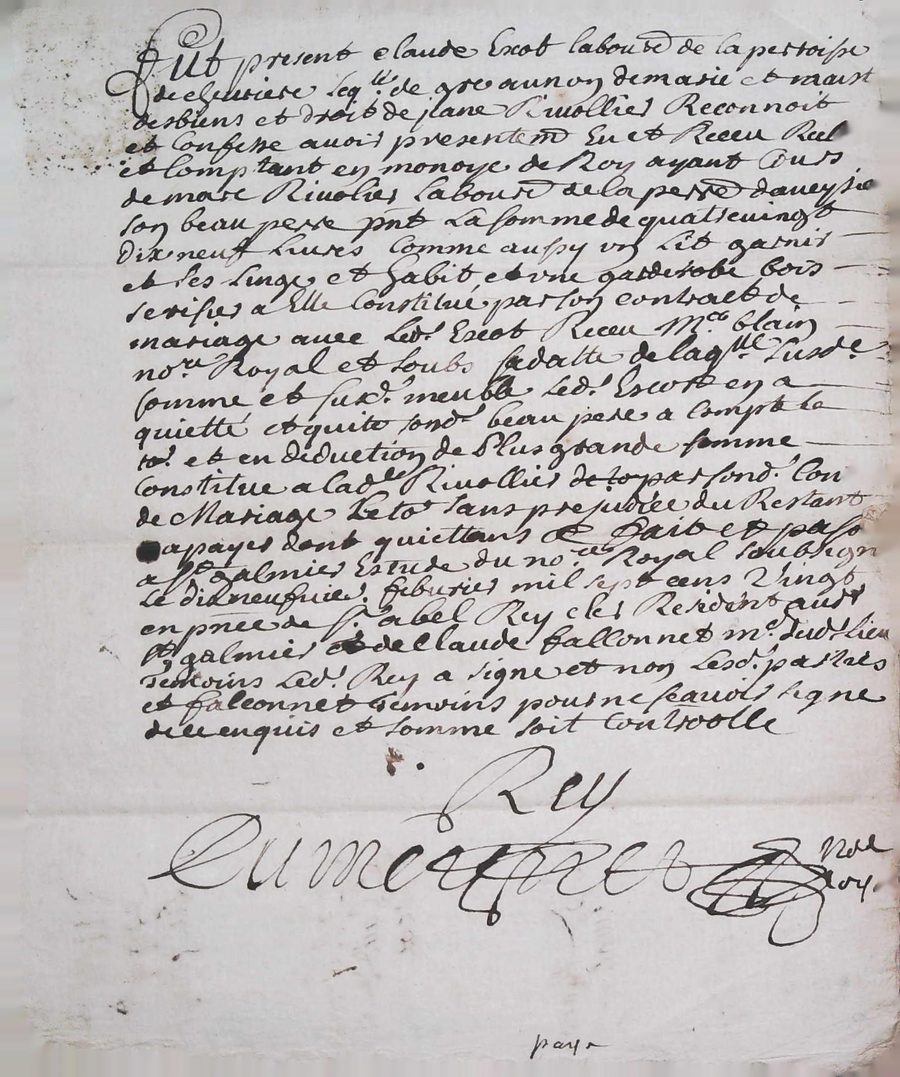 Fut present claude Escot labour? de la perroisse
de cheuriere Leql de gre au nom de marie et maist
des biens et droit de jane Riuollies Reconnoit
et Confesse auoir presentemt Eu et Receu Reel
et Comptant en monoye de Roy ayant Cours
de marc Riuolies Labourr de la perre daueysie
son beau perre pnt La somme de quatreuingt
dix neuf Liures Comme aussy un Lit garnis
et ses Linge et habit et une garderobe bois
serisier a Elle Constitué par son contract de
mariage auec Led. Escot Receu Mre blain
nore Royal et soubs sa datte de laqlle susde
somme et susd. meuble Led. Escot en a
quietté et quite sond. beau pere a compte
et en deduction de Plus grande somme
Constitue a lade Riuollies par sond. Con
de Mariage Le to. sans prejudice du Restant
a payer dont quiettans Fait et passé
a st galmier Estude du nore Royal soubsign
Le dixneufuie. feburier mil sept cens Vingt
en pnce de sr. abel Rey cler Resident aud.
st galmier et de Claude fallonnet me. dud. Lieu
Temoins Led. Rey a signe et non Lesd. parties
et falconnet Temoins pour ne scauoir signe
de ce enquis et somme soit Controolle
Rey
Dumer
Nore
Roy.
paye